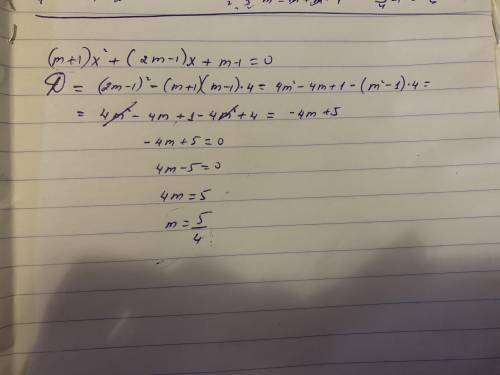 (m+1)x²+(2m-1)x+m-1=0
D = (2m-1)²-(m+1)(m-1)·4 = 4m²-4m+1-(m²-1)·4=
= 4m²-4m+1-4m²+4 = -4m+5
-4m+5=0
4m-5=0
4m=5
m=5/4